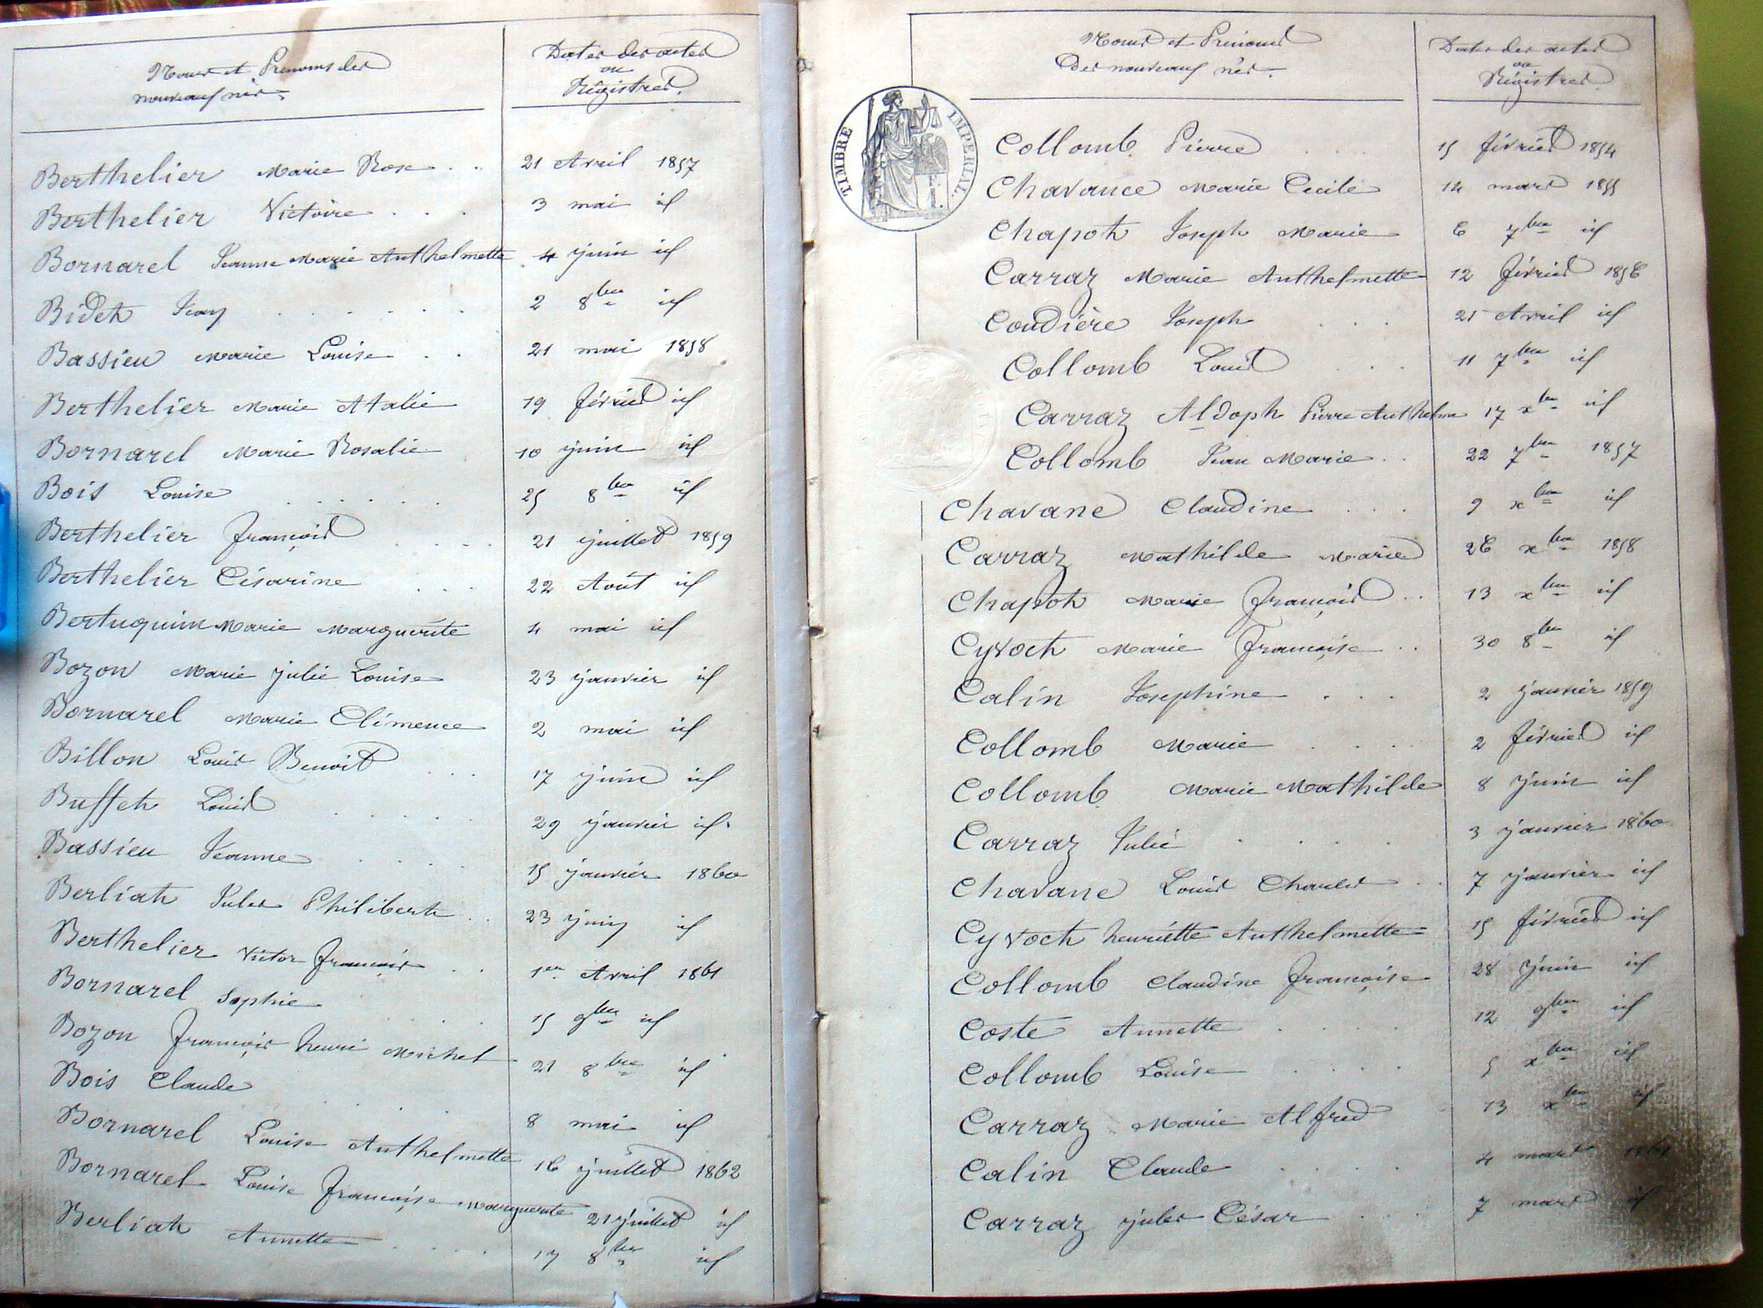 Noms et Prénoms des
nouveaux nés.
Dates des actes
ou
Régistres.
Berthelier Marie Rose . . 21 Avril 1857
Berthelier Victoire . . . 3 mai id
Bornarel Jeanne Marie Anthelmette . 4 juin id
Bidet Jean . . . . . . 2 8bre id
Bassieu Marie Louise . . 21 mai 1858
Berthelier Marie Atalie 19 février id
Bornarel Marie Rosalie 10 juin id
Bois Louise . . . . . . 25 8bre id
Berthelier François . . . . 21 juillet 1859
Berthelier Césarine . . . 22 Août id
Bertuquin Marie Marguerite 4 mai id
Bozon Marie julie Louise 23 janvier id
Bornarel Marie Clémence 2 mai id
Billon Louis Benoit . . . 17 juin id
Buffet Louis . . . . . 29 janvier id.
Bassieu Jeanne . . . . 15 janvier 1860
Berliat Jules Philibert . . 23 juin id
Berthelier Victor François . . 1er Avril 1861
Bornarel Sophie . . . . 15 9bre id
Bozon François henri Michel 21 8bre id
Bois Claude . . . . 8 mai id
Bornarel Louise Anthelmette 16 juillet 1862
Bornarel Louise Françoise Marguerite 21 juillet id
Berliat Annette . . . . 17 8bre id
Noms et Prénoms
des nouveaux nés.
Dates des actes
ou
Régistres.
TIMBRE IMPERIAL.
Collomb Pierre . . . . 15 février 1854
Chavance Marie Cecile 14 mars 1855
Chapot Joseph Marie 6 7bre id
Carraz Marie Anthelmette 12 février 1856
Coudière Joseph . . . 21 Avril id
Collomb Louis . . . 11 7bre id
Carraz Aldoph Pierre Anthelme 17 xbre id
Collomb Jean Marie . . 22 7bre 1857
Chavane Claudine . . . 9 xbre id
Carraz Mathilde Marie 26 xbre 1858
Chapot Marie François . . 13 xbre id
Cyvoct Marie Françoise . . 30 8bre id
Calin Josephine . . . 2 janvier 1859
Collomb Marie . . . . 2 février id
Collomb Marie Mathilde 8 juin id
Carraz Julie . . . . 3 janvier 1860
Chavane Louis Charles . . 7 janvier id
Cyvoct henriette Anthelmette 15 février id
Collomb Claudine Françoise 28 juin id
Coste Annette . . . . 12 9bre id
Collomb Louise . . . . 5 xbre id
Carraz Marie Alfred 13 xbre id
Calin Claude . . . . 4 mars 1861
Carraz jules César . . . 7 mars id